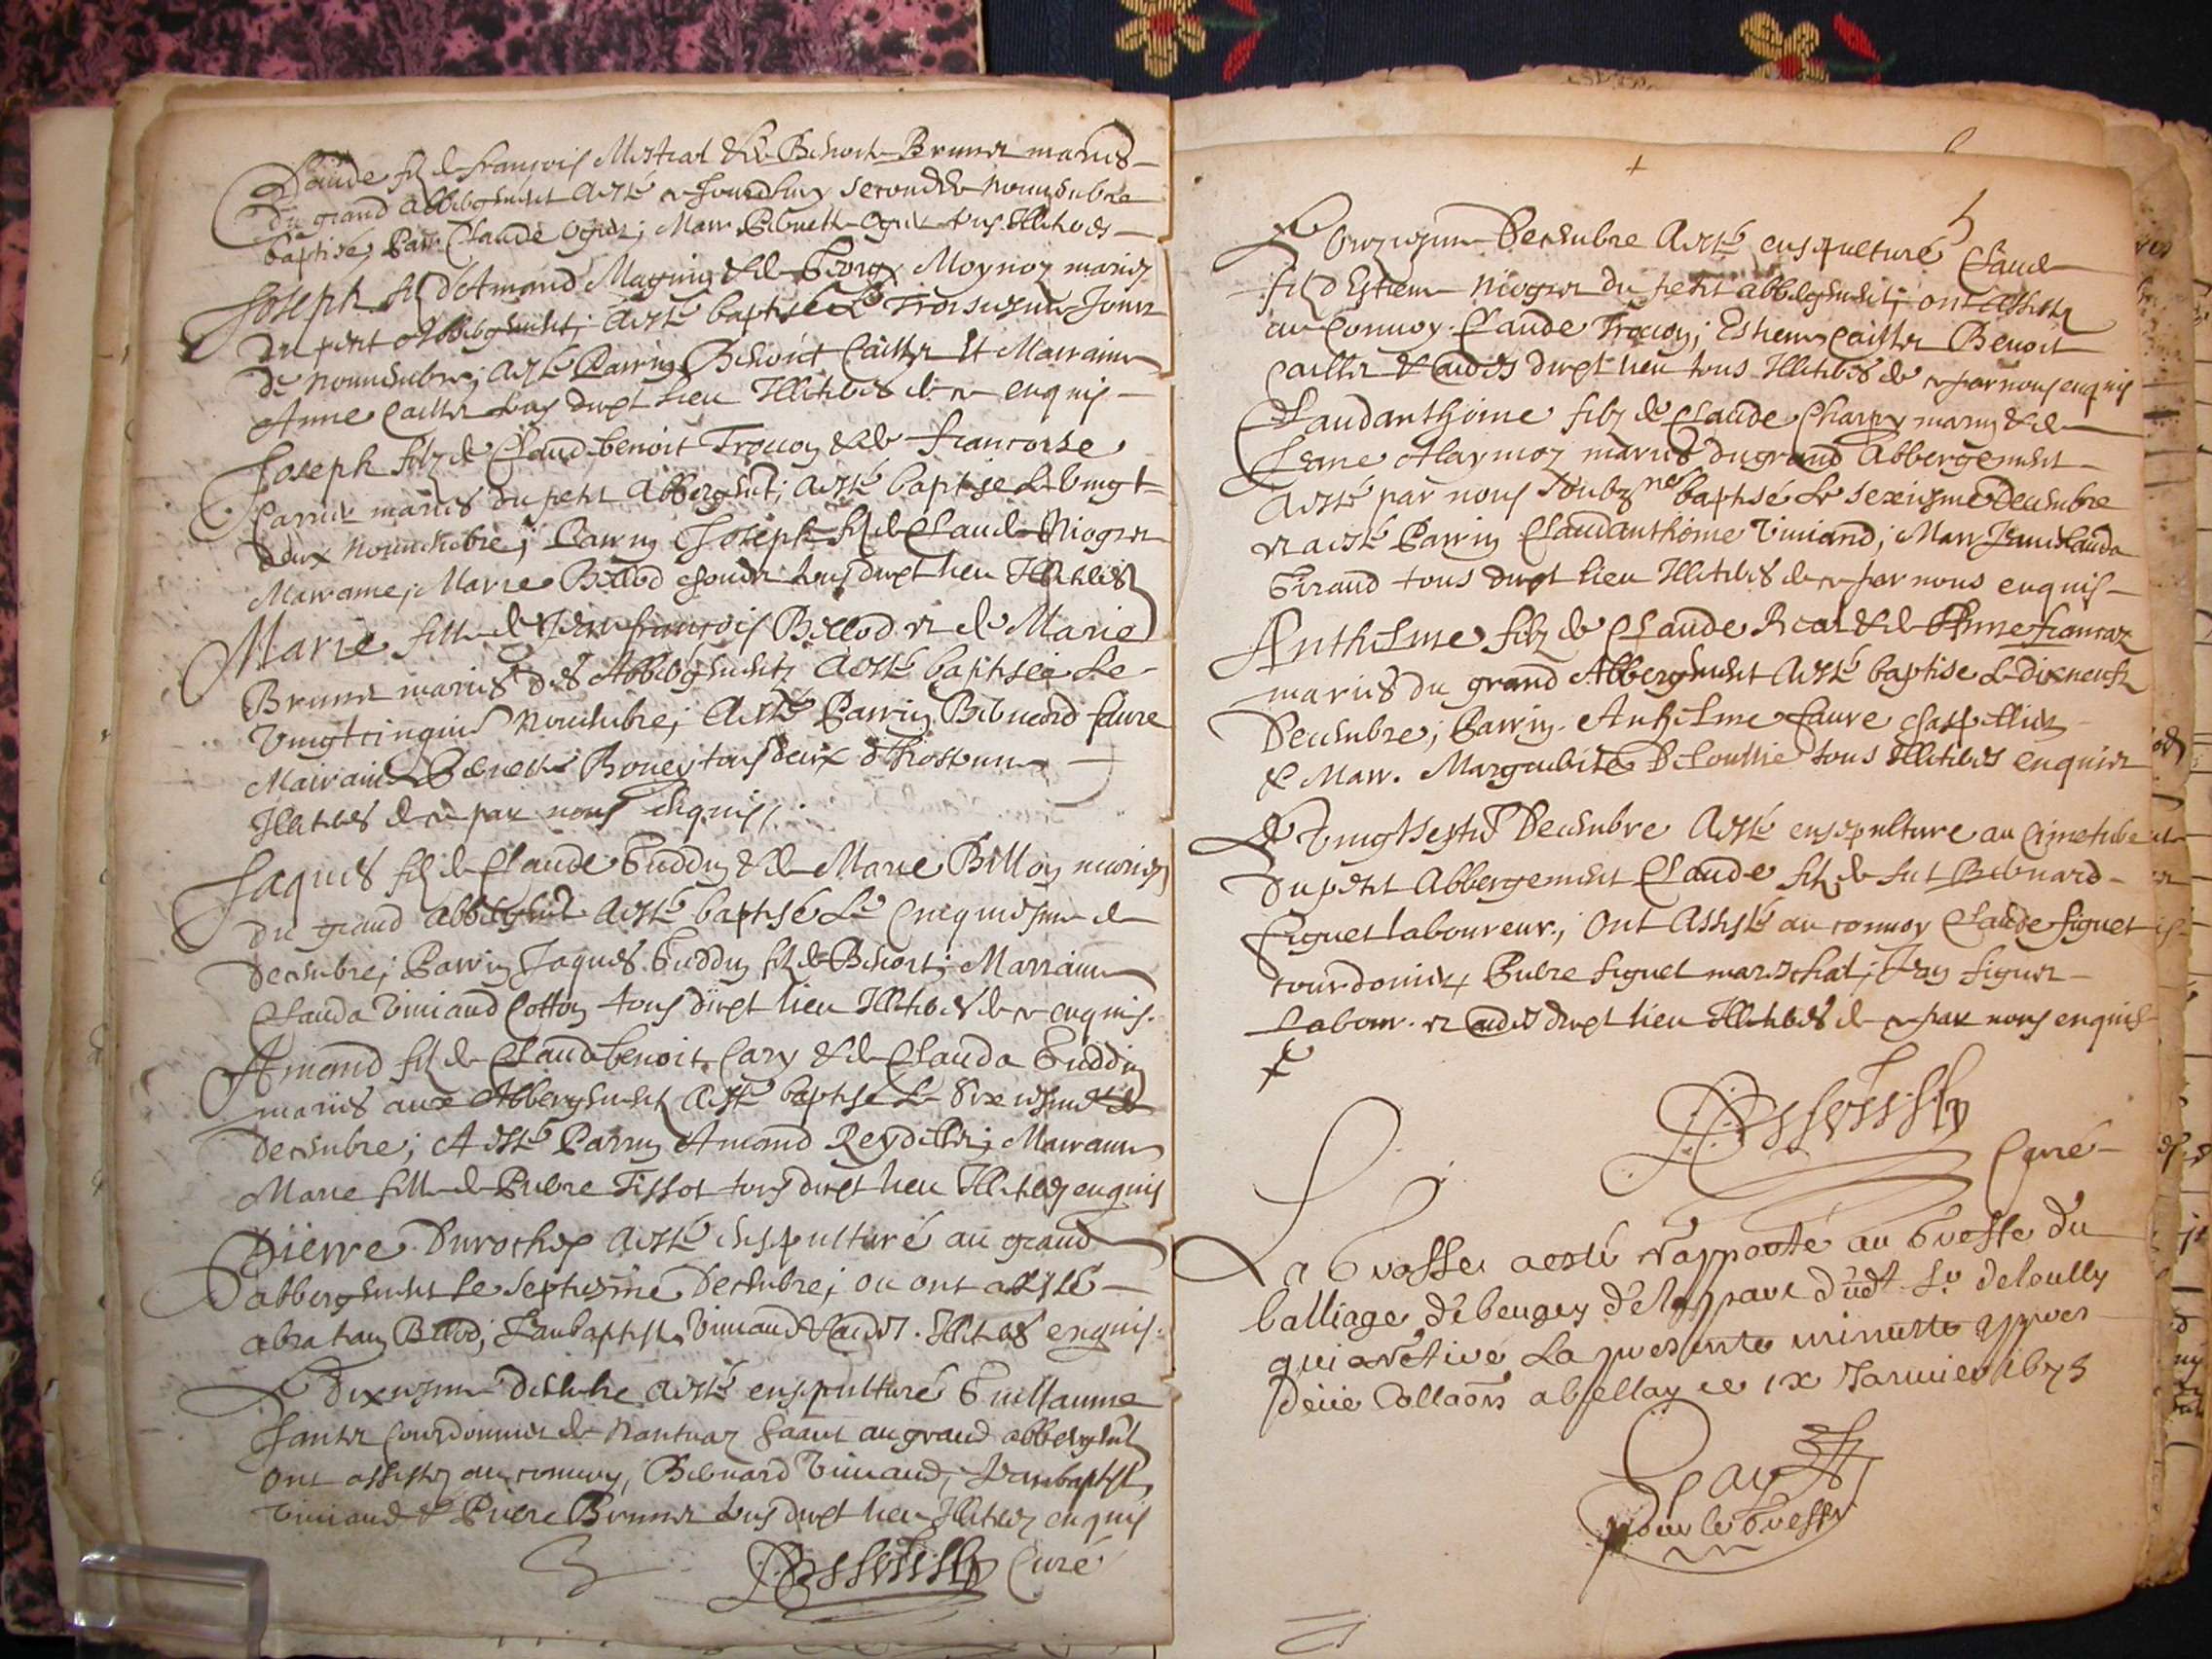 Claude filz de francois Mistral & de Benoite Brunet mariés
du grand Abbergement a esté ce Jourdhuy second de nouembre
baptisé; Parr. Claude ogier; Marr. Pernette ogier tous Illiteres
Joseph filz d'Amand Maguin & de Moynoz mariez
du petit Abbergement; a esté baptisé Le Troisiesme Jour
de nouembre; a esté Parrin Benoict Caillet et Marraine
Anne Caillet tous dudt lieu Illiteres de ce enquis
Joseph filz de Claud benoit Trocon & de francoise
Carrier mariés du petit Abbergement; a esté baptise Le vingt
deux nouembre; Parrin Joseph filz de Claude Niogret
Marraine; Marie Billod tous dudt lieu Illiteres
Marie fille de Jean francois Billod et de Marie
Brunet mariés des Abbergementz a esté baptisée Le
vingtcinquie Nouembre; a esté Parrin Bernard faure
Marraine Pernette Bouey tous deux d'hostonne
Illiteres de ce par nous enquis
Jaques filz de Claude Guddin & de Marie Billon mariez
du grand abbergement a esté baptisé Le Cinquiesme de
decembre; Parrin Jaques Guddin filz de Benoit; Marraine
Clauda Viuiand Cotton tous dudt lieu Illiteres de ce enquis.
Amand filz de Claude benoit Cary & de Clauda Guddin
mariés aux Abbergementz a esté baptisé Le Sixiesme de
decembre; A esté Parrin Amand Reydellet; Marraine
Marie fille de Pierre Tissot tous dudt lieu Illiteres enquis
Pierre Durochez a esté ensepulturé au grand
abbergement Le septiesme decembre; ou ont assisté
abraham Billod; Jeanbaptiste Viuiand & aultres. Illiteres enquis
Le dixiesme decembre a esté ensepulturé Guillaume
Jantet Courdonnier de Nantuaz au grand abbergement
ont assistez au conuoy, Bernard Viuiand, Jeanbaptiste
Viuiand & Pierre Brunet tous dudt lieu Illiterez enquis
Curé
5
Le Onziesme Decembre a esté ensepulturé Claude
filz d'Estienne Niogret du petit abbergement; ont assiste
au Conuoy Claude Trocon; Estienne Caillet Benoit
Caillet & aultres dudt lieu tous Illiteres de ce par nous enquis
Claudanthoine filz de Claude Charpy & de
Jeane Alaymoz mariés du grand Abbergement
a esté par nous soubzne baptisé Le sexiesme decembre
et a esté Parrin Claudanthoine Viuiand; Marr. Jeane Clauda
Girand tous dudt lieu Illiteres de ce par nous enquis
Anthelme filz de Claude Real & de Anne francoz
mariés du grand Abbergement a esté baptise Le dixneufz
Decembre; Parrin. Anthelme faure chappellier
& Marr. Marguerite tous Illiteres enquis
Le Vingtseptie Decembre a esté ensepulturé au cimetiere
du petit Abbergement Claude filz de fut Bernard
figuet laboureur; Ont assisté au conuoy Claude figuet
courdonier; Pierre figuet mareschal; Jean figuet
Labour. et aultres dudt lieu Illiteres de ce par nous enquis
Curé
La Grosse a esté rapporté au Greffe du
balliage de beugey de la part dudt Sr. de loully
qui a retiré La presente minutte appres
deüe Collaon a bellay ce ix Januier 1673
pour le Greffe